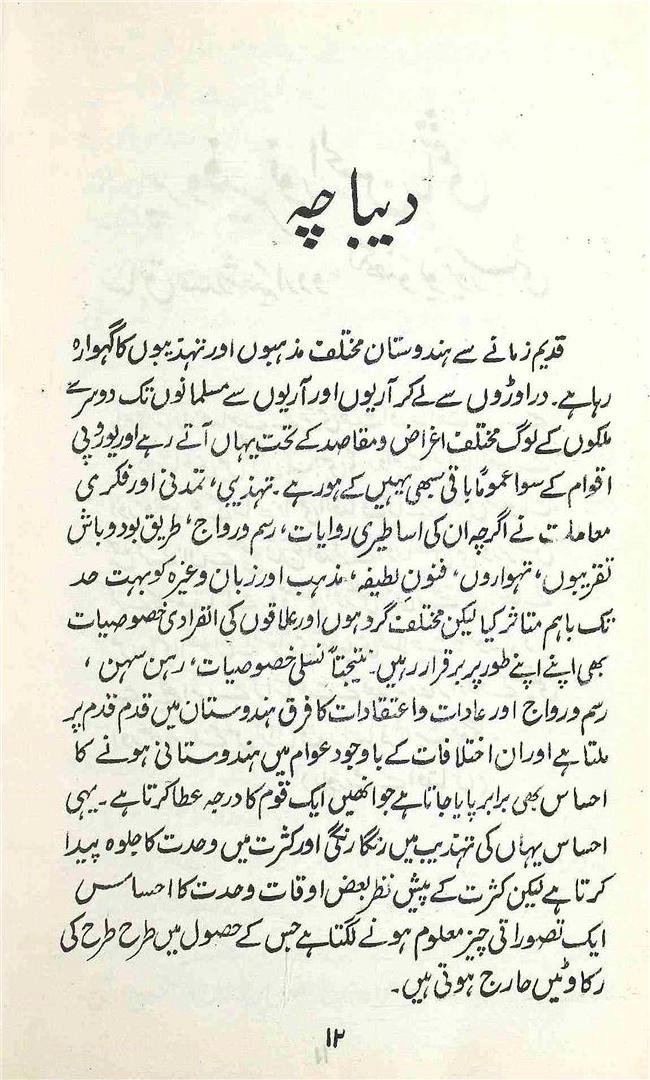 دیباچہ
قدیم زمانے سے ہندوستان مختلف مذہبوں اور تہذیبوں کا گہوارہ
رہا ہے۔ دراوڑوں سے لے کر آریوں اور آریوں سے مسلمانوں تک دوسرے
ملکوں کے لوگ مختلف اغراض و مقاصد کے تحت یہاں آتے رہے اور یوروپی
اقوام کے سوا عموماً باقی سبھی یہیں کے ہو رہے۔ تہذیبی، تمدنی اور فکری
معاملات نے اگرچہ ان کی اساطیری روایات، رسم و رواج، طریق بود و باش
تقریبوں، تہواروں، فنونِ لطیفہ، مذہب اور زبان وغیرہ کو بہت حد
تک باہم متاثر کیا لیکن مختلف گروہوں اور علاقوں کی انفرادی خصوصیات
بھی اپنے اپنے طور پر برقرار رہیں۔ نتیجتاً نسلی خصوصیات، رہن سہن،
رسم و رواج اور عادات و اعتقادات کا فرق ہندوستان میں قدم قدم پر
ملتا ہے اور ان اختلافات کے باوجود عوام میں ہندوستانی ہونے کا
احساس بھی برابر پایا جاتا ہے جو انھیں ایک قوم کا درجہ عطا کرتا ہے۔ یہی
احساس یہاں کی تہذیب میں رنگا رنگی اور کثرت میں وحدت کا جلوہ پیدا
کرتا ہے لیکن کثرت کے پیش نظر بعض اوقات وحدت کا احساس
ایک تصوراتی چیز معلوم ہونے لگتا ہے جس کے حصول میں طرح طرح کی
رکاوٹیں حارج ہوتی ہیں۔
۱۲